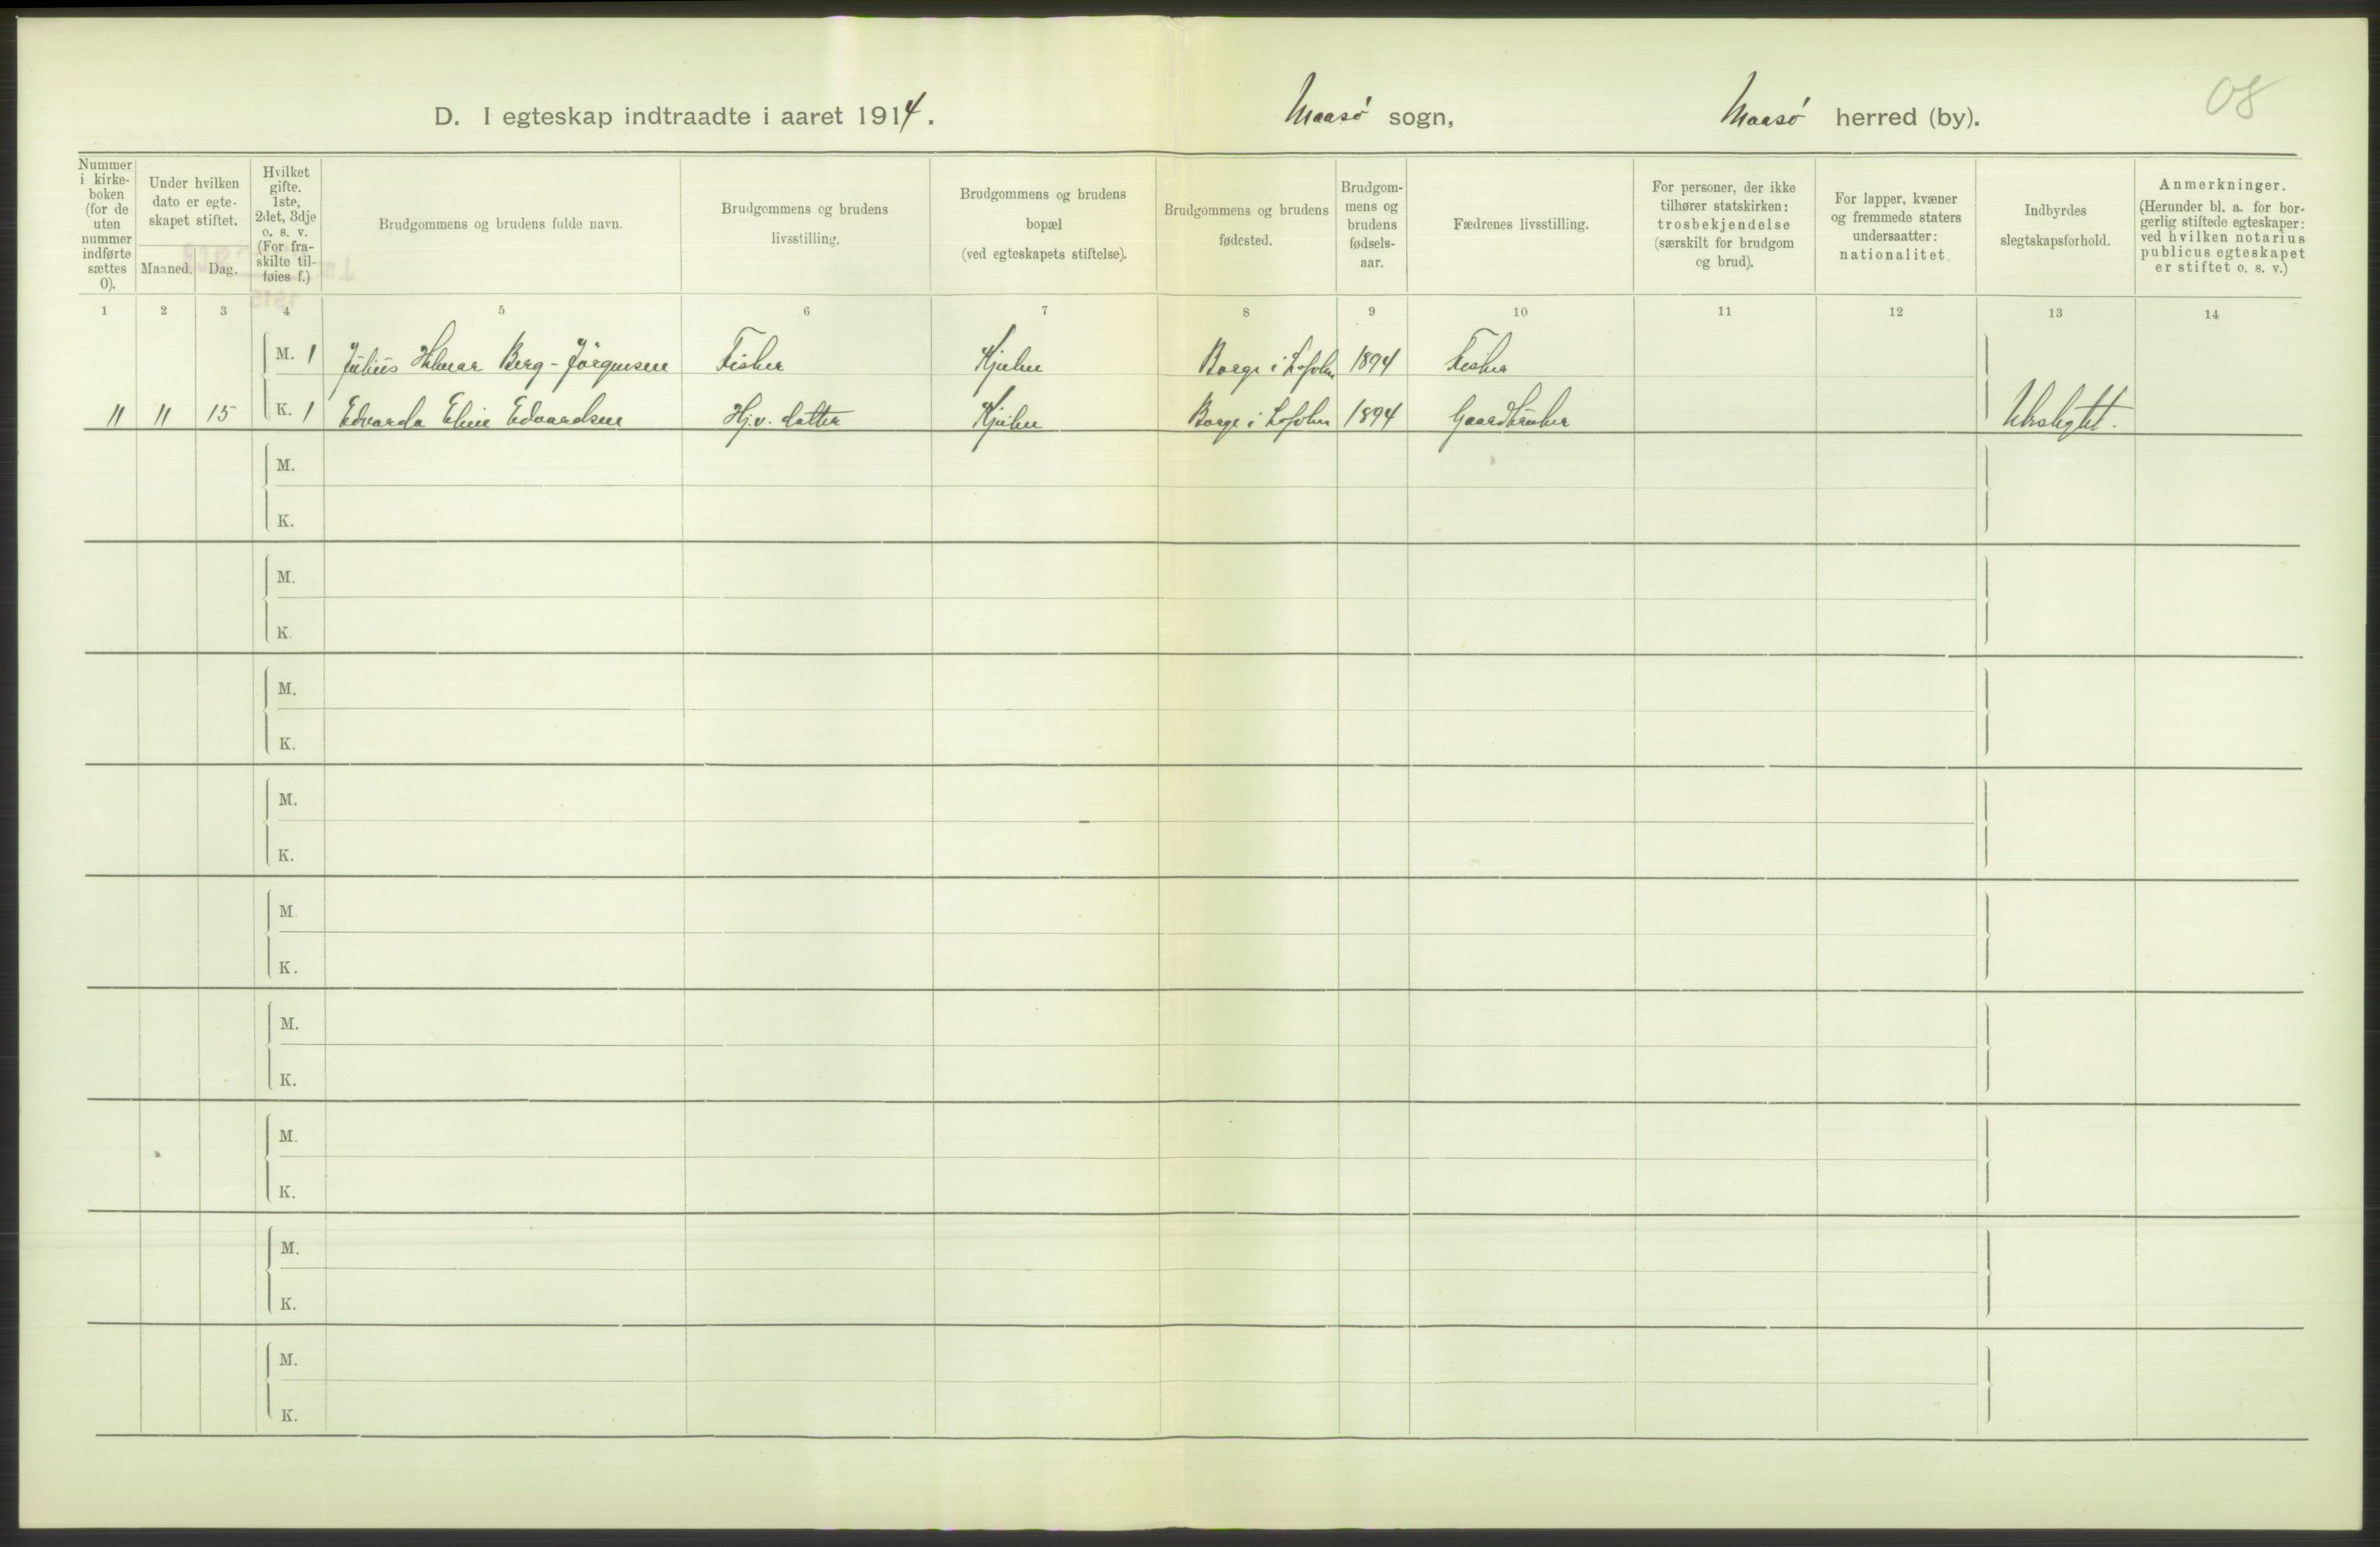 D. I egteskap indtraadte i aaret 1914. Maasø sogn, Maasø herred (by). 08
Nummer i kirke-boken (for de uten nummer indførte sættes 0).
Under hvilken dato er egte-skapet stiftet.
Maaned. Dag.
Hvilket gifte. 1ste, 2det, 3dje o. s. v. (For fra-skilte til-føies f.)
Brudgommens og brudens fulde navn.
Brudgommens og brudens livsstilling.
Brudgommens og brudens bopæl (ved egteskapets stiftelse).
Brudgommens og brudens fødested.
Brudgom-mens og brudens fødsels-aar.
Fædrenes livsstilling.
For personer, der ikke tilhører statskirken: trosbekjendelse (særskilt for brudgom og brud).
For lapper, kvæner og fremmede staters undersaatter: nationalitet.
Indbyrdes slegtskapsforhold.
Anmerkninger. (Herunder bl. a. for bor-gerlig stiftede egteskaper: ved hvilken notarius publicus egteskapet er stiftet o. s. v.)
1 2 3 4 5 6 7 8 9 10 11 12 13 14
M. 1 Julius Hilmar Berg-Jörgensen Fisker Borge i Lofoten 1894 Fisker
11 11 15 K. 1 Edvarda Eline Edvardsen Hj.v. datter Borge i Lofoten 1894 Gaardbruker Ubeslegtet.
M.
K.
M.
K.
M.
K.
M.
K.
M.
K.
M.
K.
M.
K.
M.
K.
M.
K.